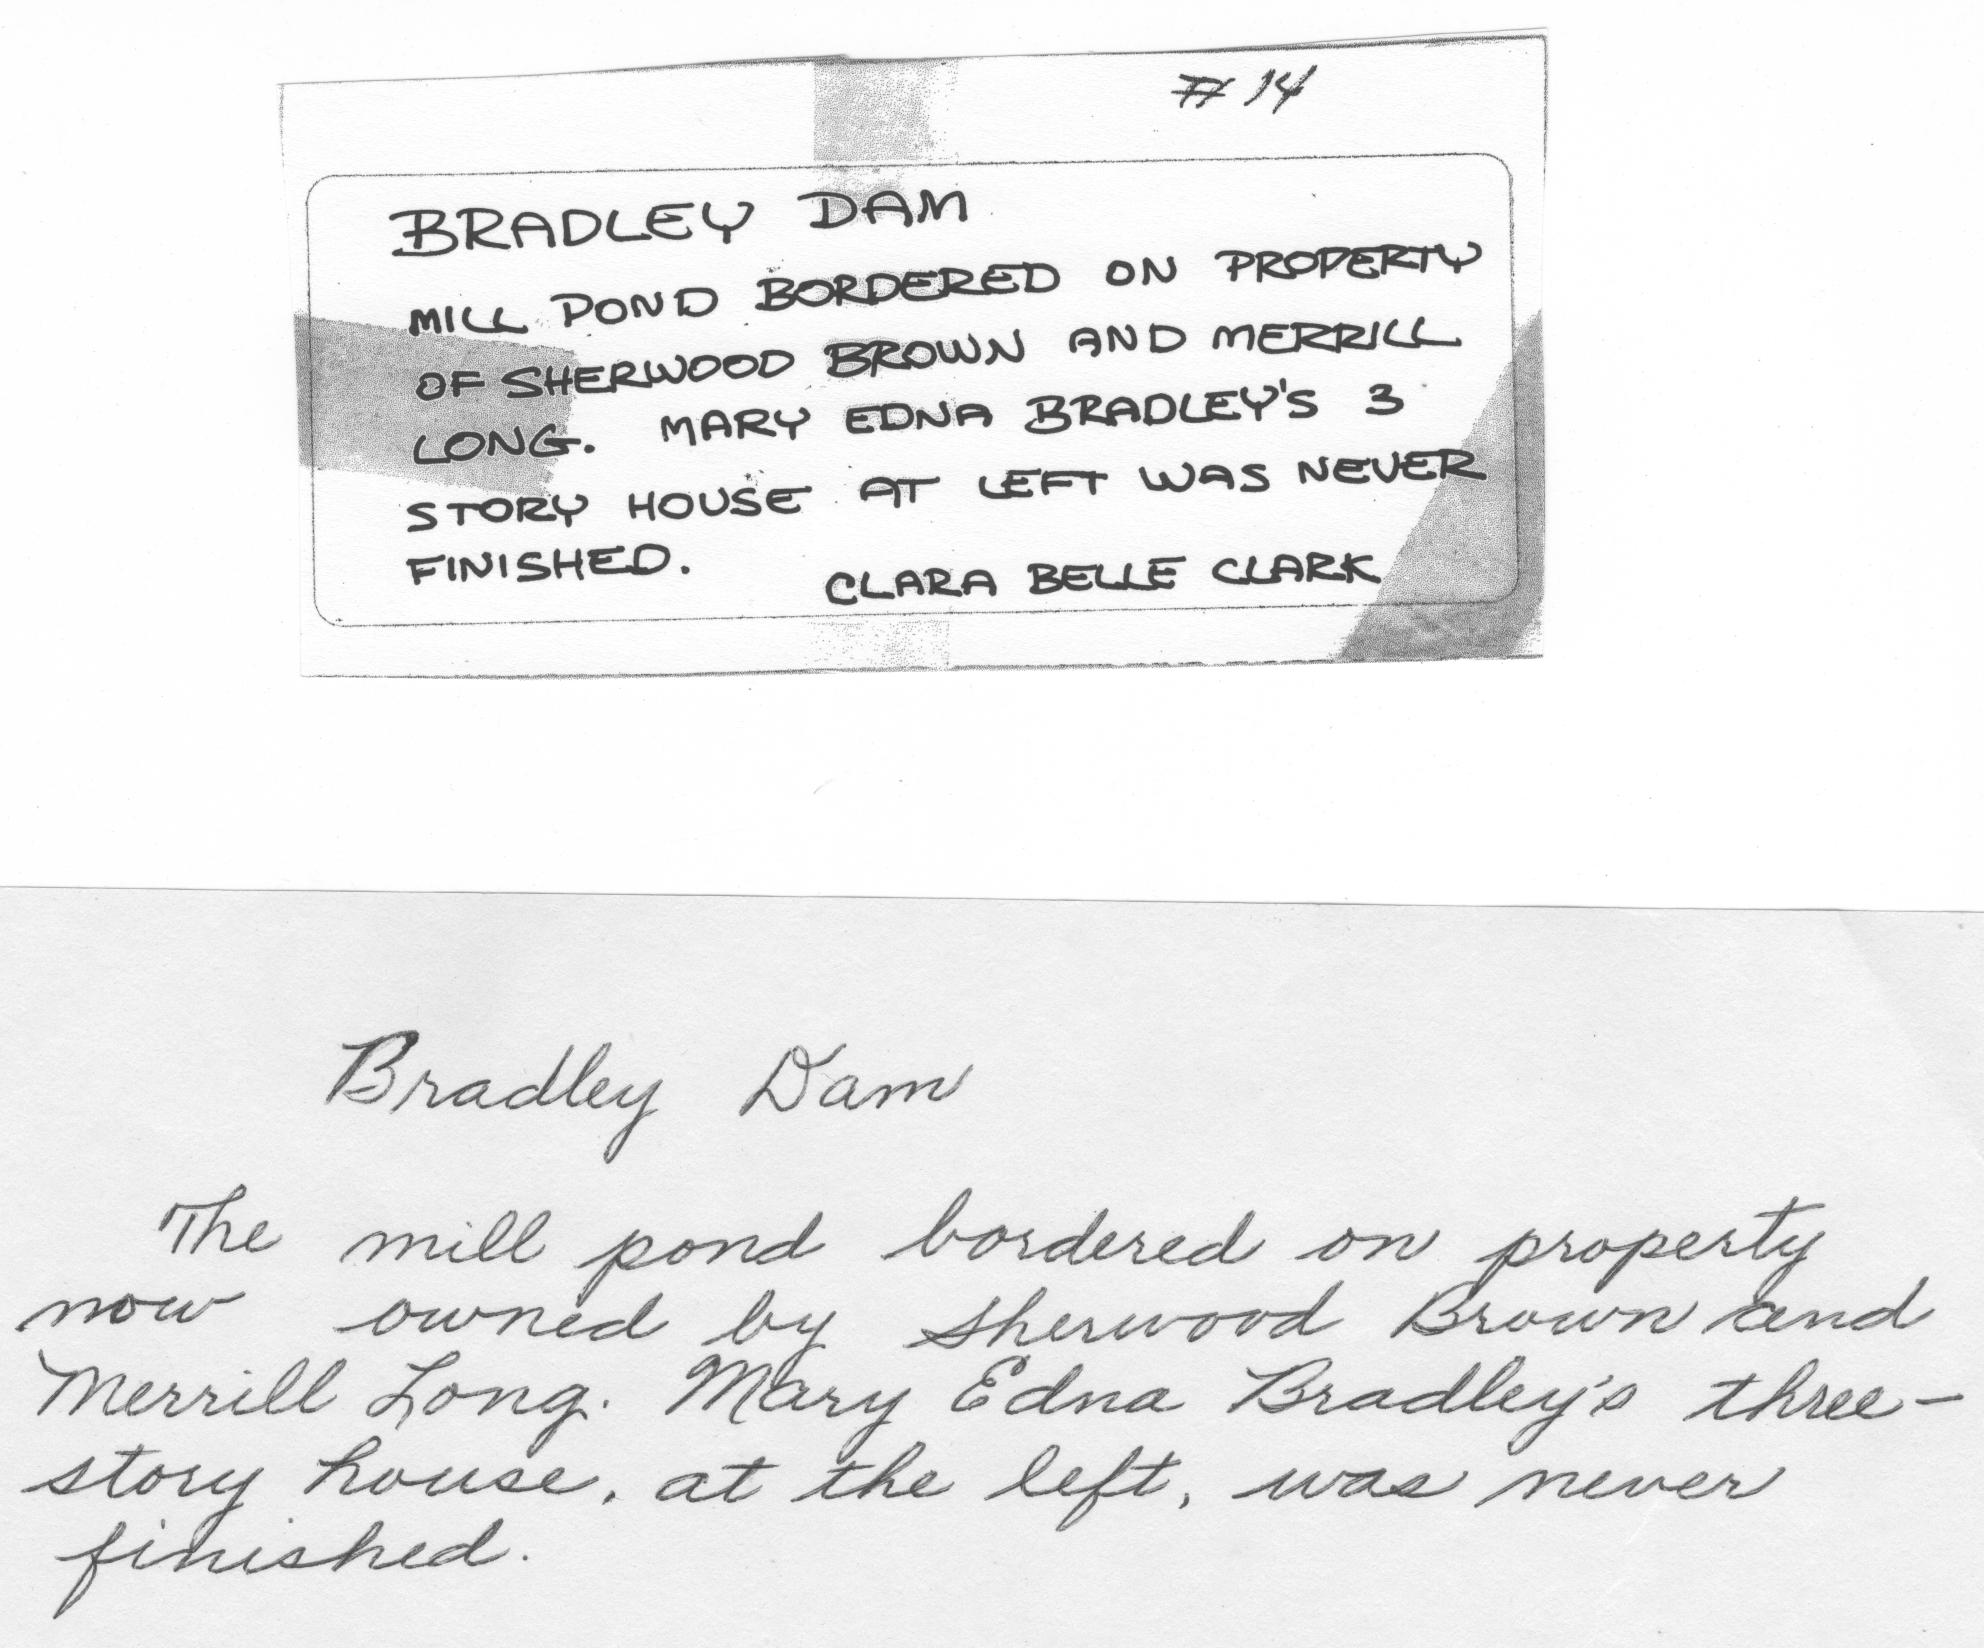 # 14
BRADLEY DAM
MILL POND BORDERED ON PROPERTY
OF SHERWOOD BROWN AND MERRILL
LONG. MARY EDNA BRADLEY'S 3
STORY HOUSE AT LEFT WAS NEVER
FINISHED.
CLARA BELLE CLARK
Bradley Dam
The mill pond bordered on property
now owned by Sherwood Brown and
Merrill Long. Mary Edna Bradley's three-
story house, at the left, was never
finished.